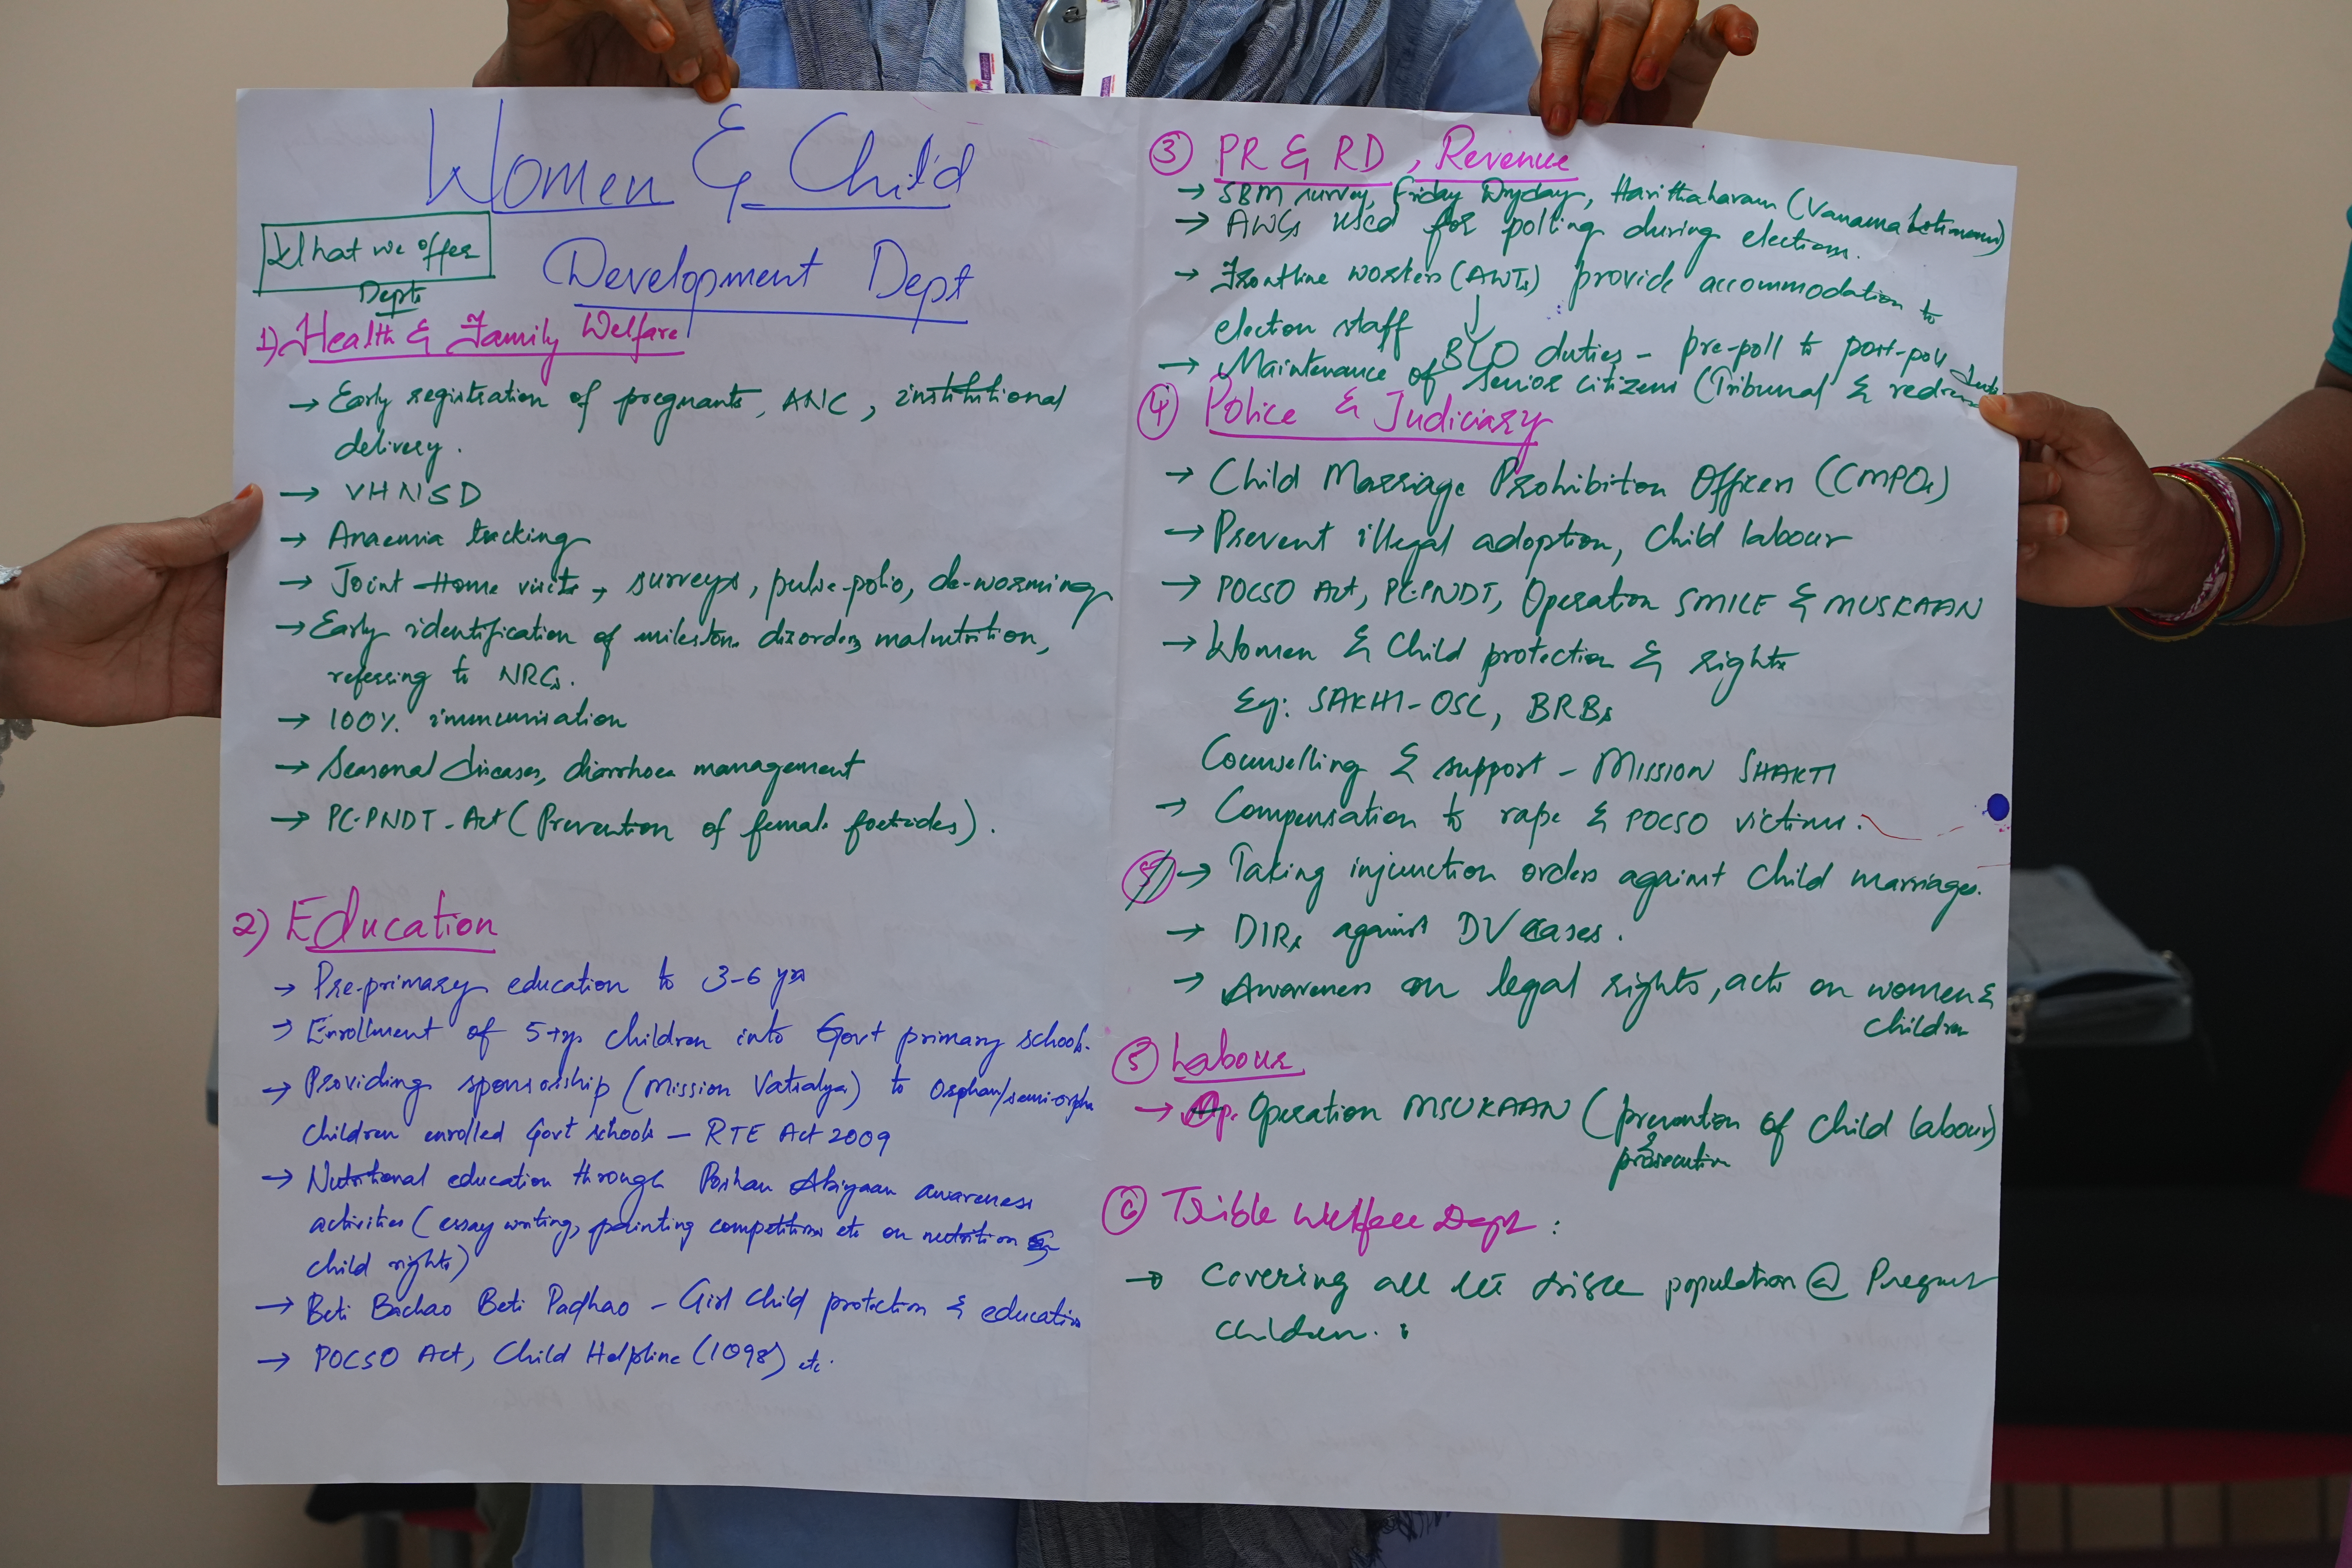 Women & Child
What we offer
Development Dept
Depts
1) Health & Family Welfare
→ Early registration of pregnants, ANC, institutional
delivery.
→ VHNSD
→ Anaemia tracking
→ Joint Home visits, surveys, pulse-polio, de-worming
→ Early identification of milestone disorders, malnutrition,
referring to NRCs.
→ 100% immunisation
→ Seasonal diseases, diarrhoea management
→ PC-PNDT-Act (Prevention of female foeticides).
2) Education
→ Pre-primary education to 3-6 yrs
→ Enrollment of 5+yrs children into Govt primary schools.
→ Providing sponsorship (Mission Vatsalya) to Orphan/semi-orphan
children enrolled Govt schools - RTE Act 2009
→ Nutritional education through Poshan Abiyaan awareness
activities (essay writing, painting competitions etc on nutrition &
child rights)
→ Beti Bachao Beti Padhao - Girl Child protection & education
→ POCSO Act, Child Helpline (1098) etc.
③ PR & RD, Revenue
→ SBM survey, Friday Dryday, Harithaharam (Vanamahotsavam)
→ AWCs used for polling during elections.
→ Frontline workers (AWTs) provide accommodation to
election staff
BLO duties - pre-poll to post-poll
→ Maintenance of Senior citizens (Tribunal &
④ Police & Judiciary
→ Child Marriage Prohibition Officers (CMPOs)
→ Prevent illegal adoption, Child labour
→ POCSO Act, PC-PNDT, Operation SMILE & MUSKAAN
→ Women & Child protection & rights
Eg: SAKHI-OSC, BRBs
Counselling & support - MISSION SHAKTI
→ Compensation to rape & POCSO victims.
→ Taking injunction orders against Child marriages.
→ DIRs against DV cases.
→ Awareness on legal rights, acts on women &
children
⑤ Labour
→ Operation MSUKAAN (prevention of child labour)
& prosecution
⑥ Trible Welfare Dept:
→ Covering all population @ Pregnant
children.